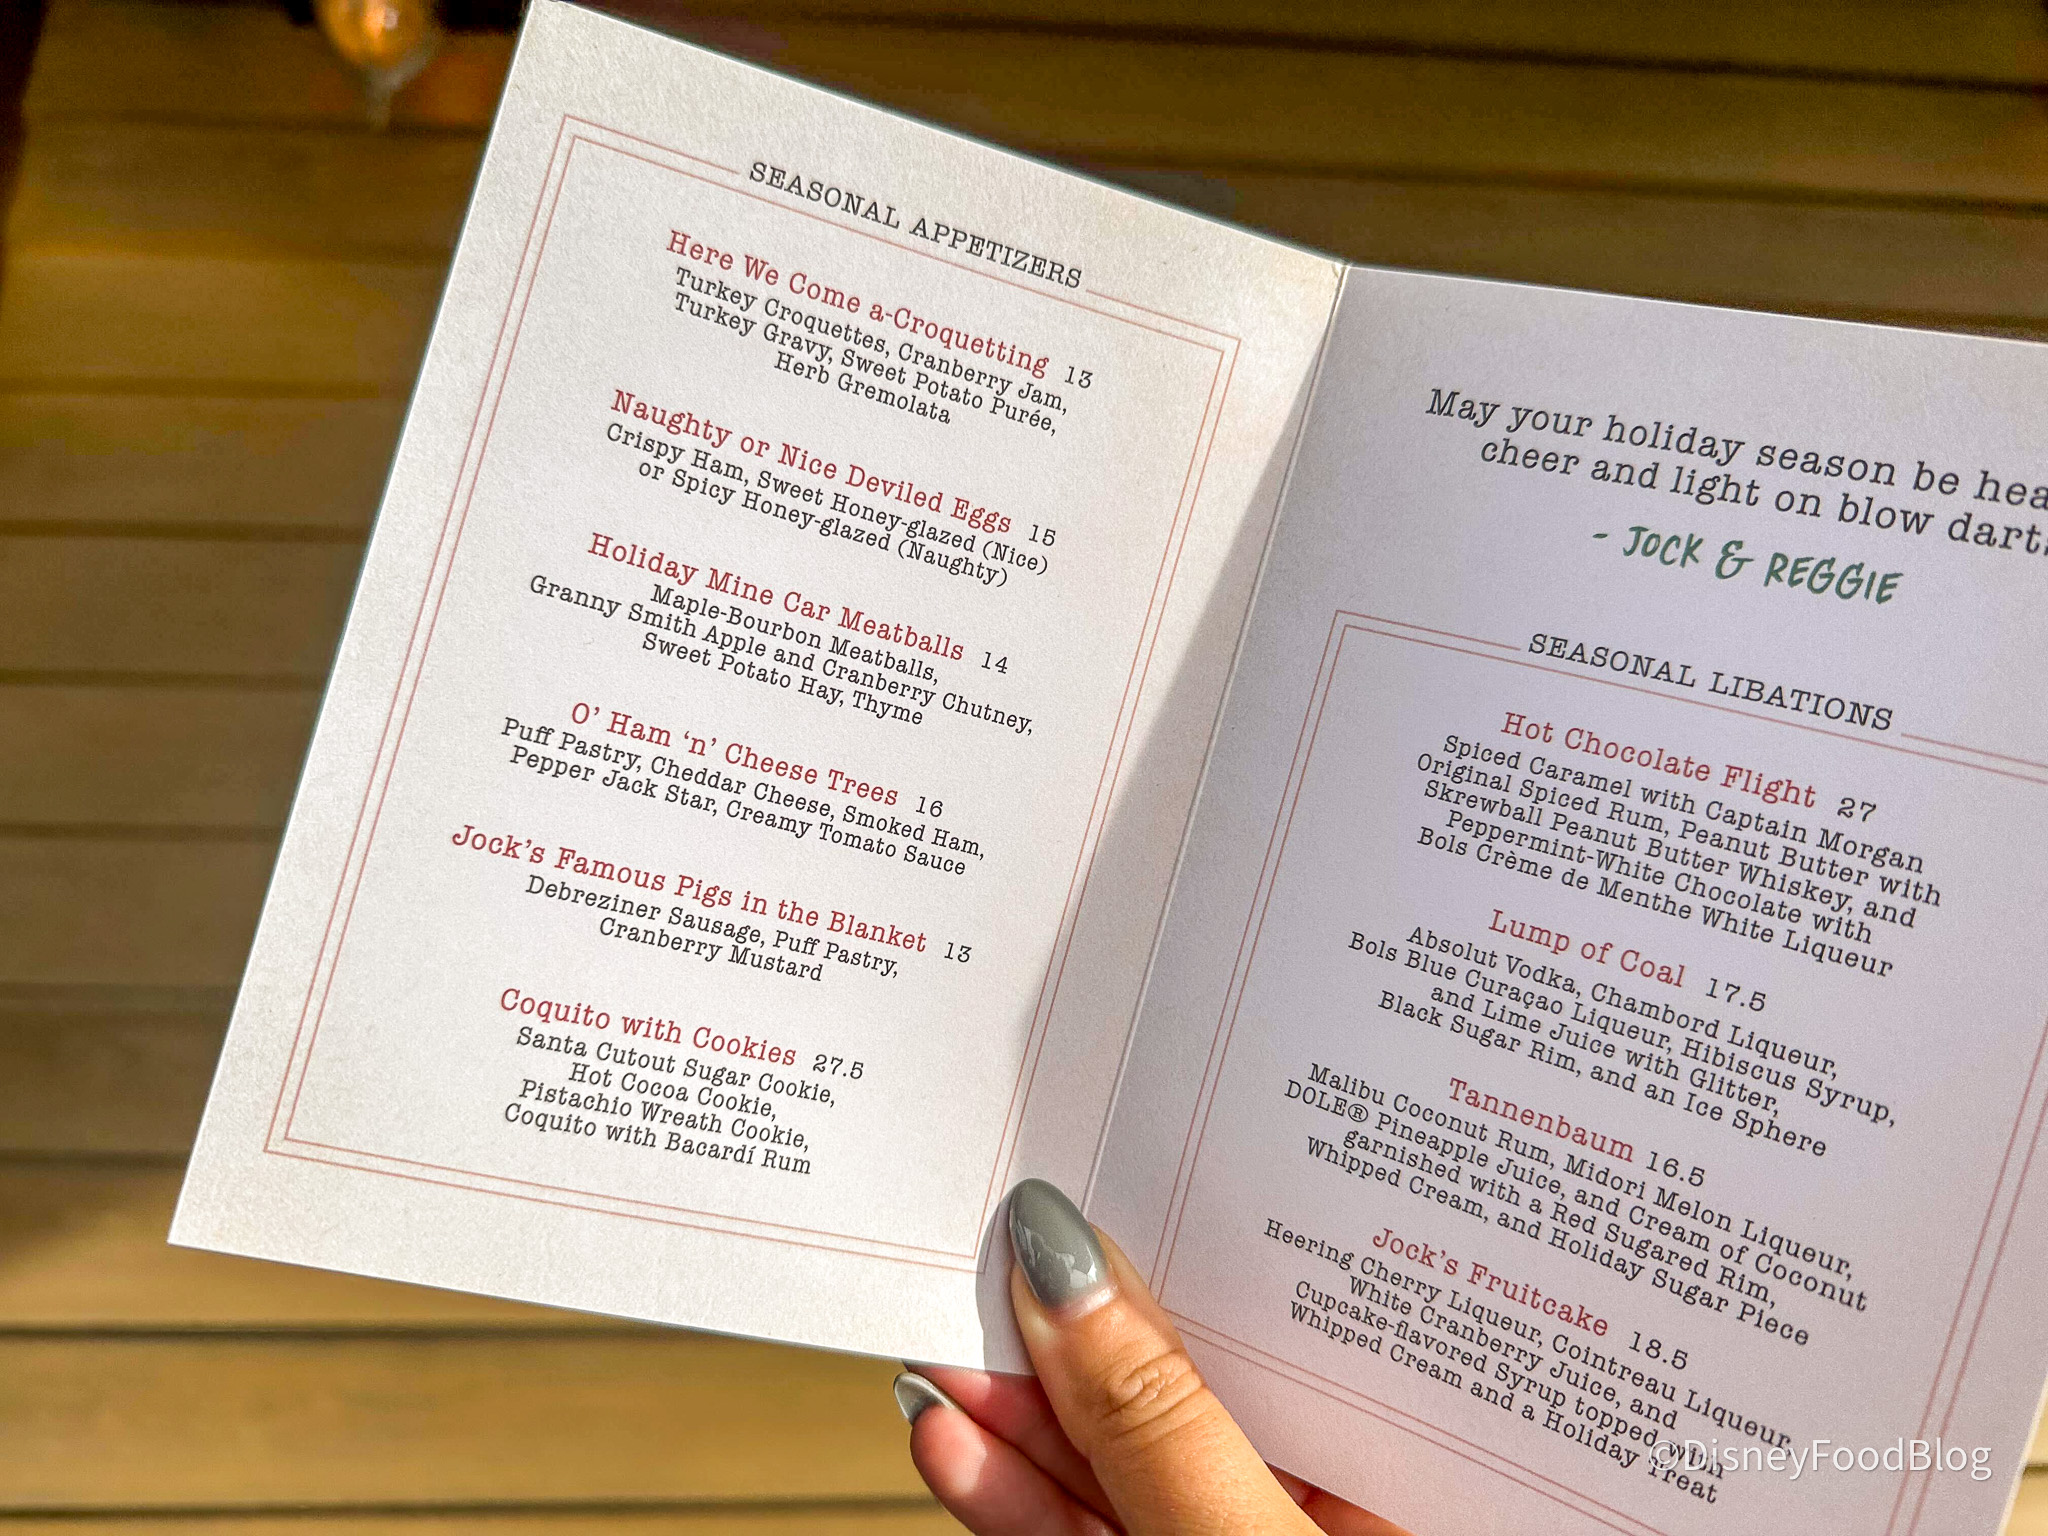 SEASONAL APPETIZERS
Here We Come a-Croquetting 13
Turkey Croquettes, Cranberry Jam,
Turkey Gravy, Sweet Potato Purée,
Herb Gremolata
Naughty or Nice Deviled Eggs 15
Crispy Ham, Sweet Honey-glazed (Nice)
or Spicy Honey-glazed (Naughty)
Holiday Mine Car Meatballs 14
Maple-Bourbon Meatballs,
Granny Smith Apple and Cranberry Chutney,
Sweet Potato Hay, Thyme
O' Ham 'n' Cheese Trees 16
Puff Pastry, Cheddar Cheese, Smoked Ham,
Pepper Jack Star, Creamy Tomato Sauce
Jock's Famous Pigs in the Blanket 13
Debreziner Sausage, Puff Pastry,
Cranberry Mustard
Coquito with Cookies 27.5
Santa Cutout Sugar Cookie,
Hot Cocoa Cookie,
Pistachio Wreath Cookie,
Coquito with Bacardí Rum
May your holiday season be
cheer and light on blow
- JOCK & REGGIE
SEASONAL LIBATIONS
Hot Chocolate Flight 27
Spiced Caramel with Captain Morgan
Original Spiced Rum, Peanut Butter with
Skrewball Peanut Butter Whiskey, and
Peppermint-White Chocolate with
Bols Crème de Menthe White Liqueur
Lump of Coal 17.5
Absolut Vodka, Chambord Liqueur,
Bols Blue Curaçao Liqueur, Hibiscus Syrup,
and Lime Juice with Glitter,
Black Sugar Rim, and an Ice Sphere
Tannenbaum 16.5
Malibu Coconut Rum, Midori Melon Liqueur,
DOLE® Pineapple Juice, and Cream of Coconut
garnished with a Red Sugared Rim,
Whipped Cream, and Holiday Sugar Piece
Jock's Fruitcake 18.5
Heering Cherry Liqueur, Cointreau Liqueur,
White Cranberry Juice, and
Cupcake-flavored Syrup topped with
Whipped Cream and a Holiday Treat
©DisneyFoodBlog